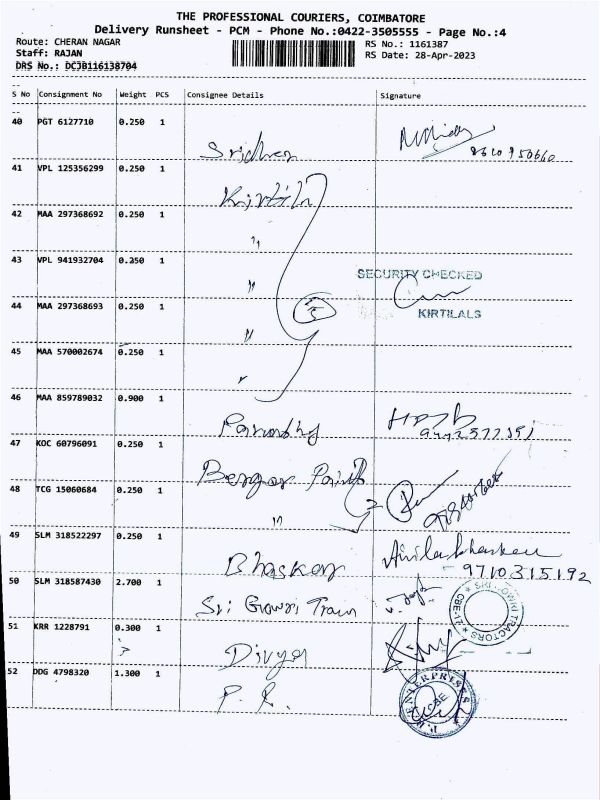 THE PROFESSIONAL COURIERS, COIMBATORE
Delivery Runsheet - PCM - Phone No.:0422-3505555 - Page No.:4
Route: CHERAN NAGAR RS No.: 1161387
Staff: RAJAN RS Date: 28-Apr-2023
DRS No.: DCJB116138704
S No Consignment No Weight PCS Consignee Details Signature
40 PGT 6127710 0.250 1
Sridher
41 VPL 125356299 0.250 1
Kirtilal
42 MAA 297368692 0.250 1
"
43 VPL 941932704 0.250 1
"
SECURITY CHECKED
KIRTILALS
44 MAA 297368693 0.250 1
"
45 MAA 570002674 0.250 1
"
46 MAA 859789032 0.900 1
47 KOC 60796091 0.250 1
Berger Paints
48 TCG 15060684 0.250 1
"
49 SLM 318522297 0.250 1
Bhaskar
9710315192
50 SLM 318587430 2.700 1
Sri Gowri Tracn
SRI GOWRI TRACTORS * CBE-17 *
51 KRR 1228791 0.300 1
Divya
52 DDG 4798320 1.300 1
P. R.
ENTERPRISES
CBE